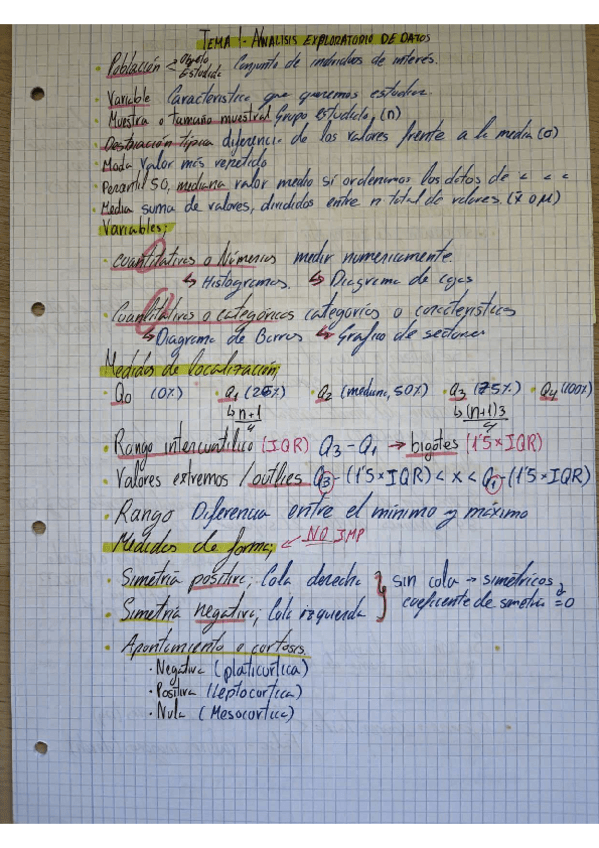 TEMA 1.- ANÁLISIS EXPLORATORIO DE DATOS
· Población < Objeto Estudio Conjunto de individuos de interés.
· Variable Característica que queremos estudiar.
· Muestra o tamaño muestral Grupo estudiado, (n)
· Desviación típica diferencia de los valores frente a la media (σ)
· Moda valor más repetido
· Percentil 50, mediana valor medio si ordenamos los datos de < a <
· Media suma de valores, divididos entre n total de valores. (x̄ o μ)
Variables;
· Cuantitativas o Númericos medir numericamente.
↳ Histogramas. ↳ Diagrama de cajas
· Cualitativas o categóricas categorías o características
↳ Diagrama de Barras ↳ Grafico de sectores
Medidas de localización;
· Q0 (0%) · Q1 (25%) · Q2 (mediana, 50%) · Q3 (75%) · Q4 (100%)
↳ n+1/4 ↳ (n+1)3/4
· Rango intercuartílico (IQR) Q3-Q1 → bigotes (1'5×IQR)
· Valores extremos / outlies Q3-(1'5×IQR) < x < Q1-(1'5×IQR)
· Rango Diferencia entre el mínimo y máximo
Medidas de forma; ↙ NO IMP
· Simetría positiva; Cola derecha } sin cola → simétricos
· Simetría negativa; Cola izquierda coeficiente de simetría =0
· Apontamiento o curtosis.
· Negativa (platicurtica)
· Positiva (Leptocurtica)
· Nula (Mesocurtica)